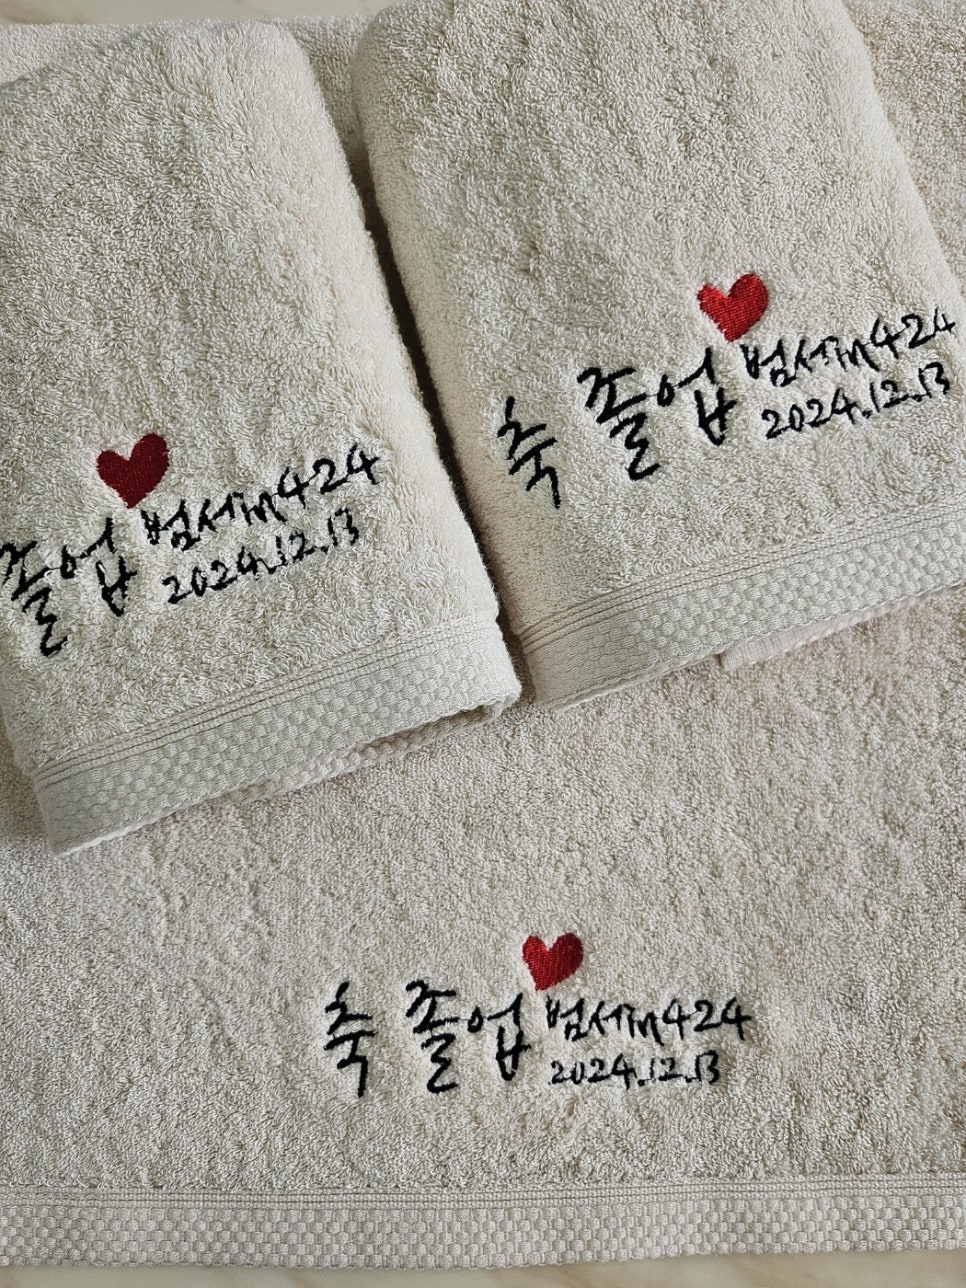 졸업 범서in424
2024.12.13
축 졸업 범서in424
2024.12.13
축 졸업 범서in424
2024.12.13